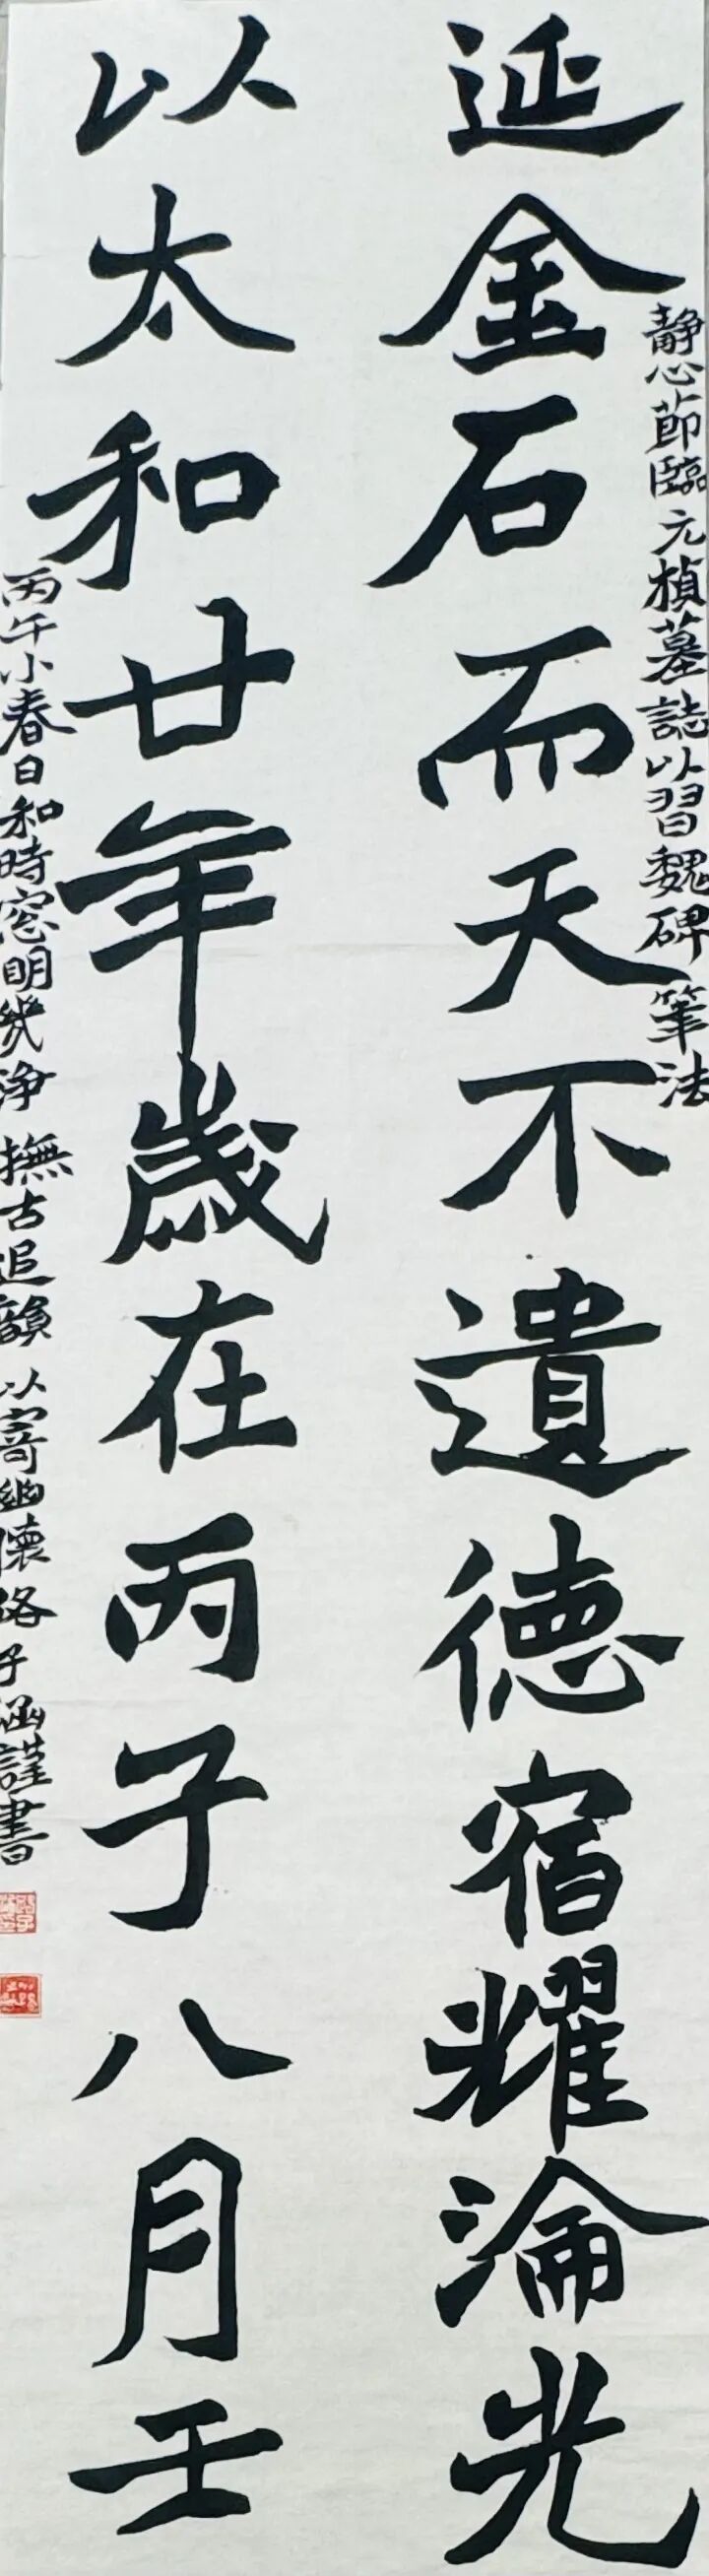 延金石而天不遺德宿耀淪光
以太和廿年歲在丙子八月壬
靜心節臨元楨墓誌以習魏碑筆法
丙午小春日和時窓明幾淨撫古追韻以寄幽懷路子涵謹書